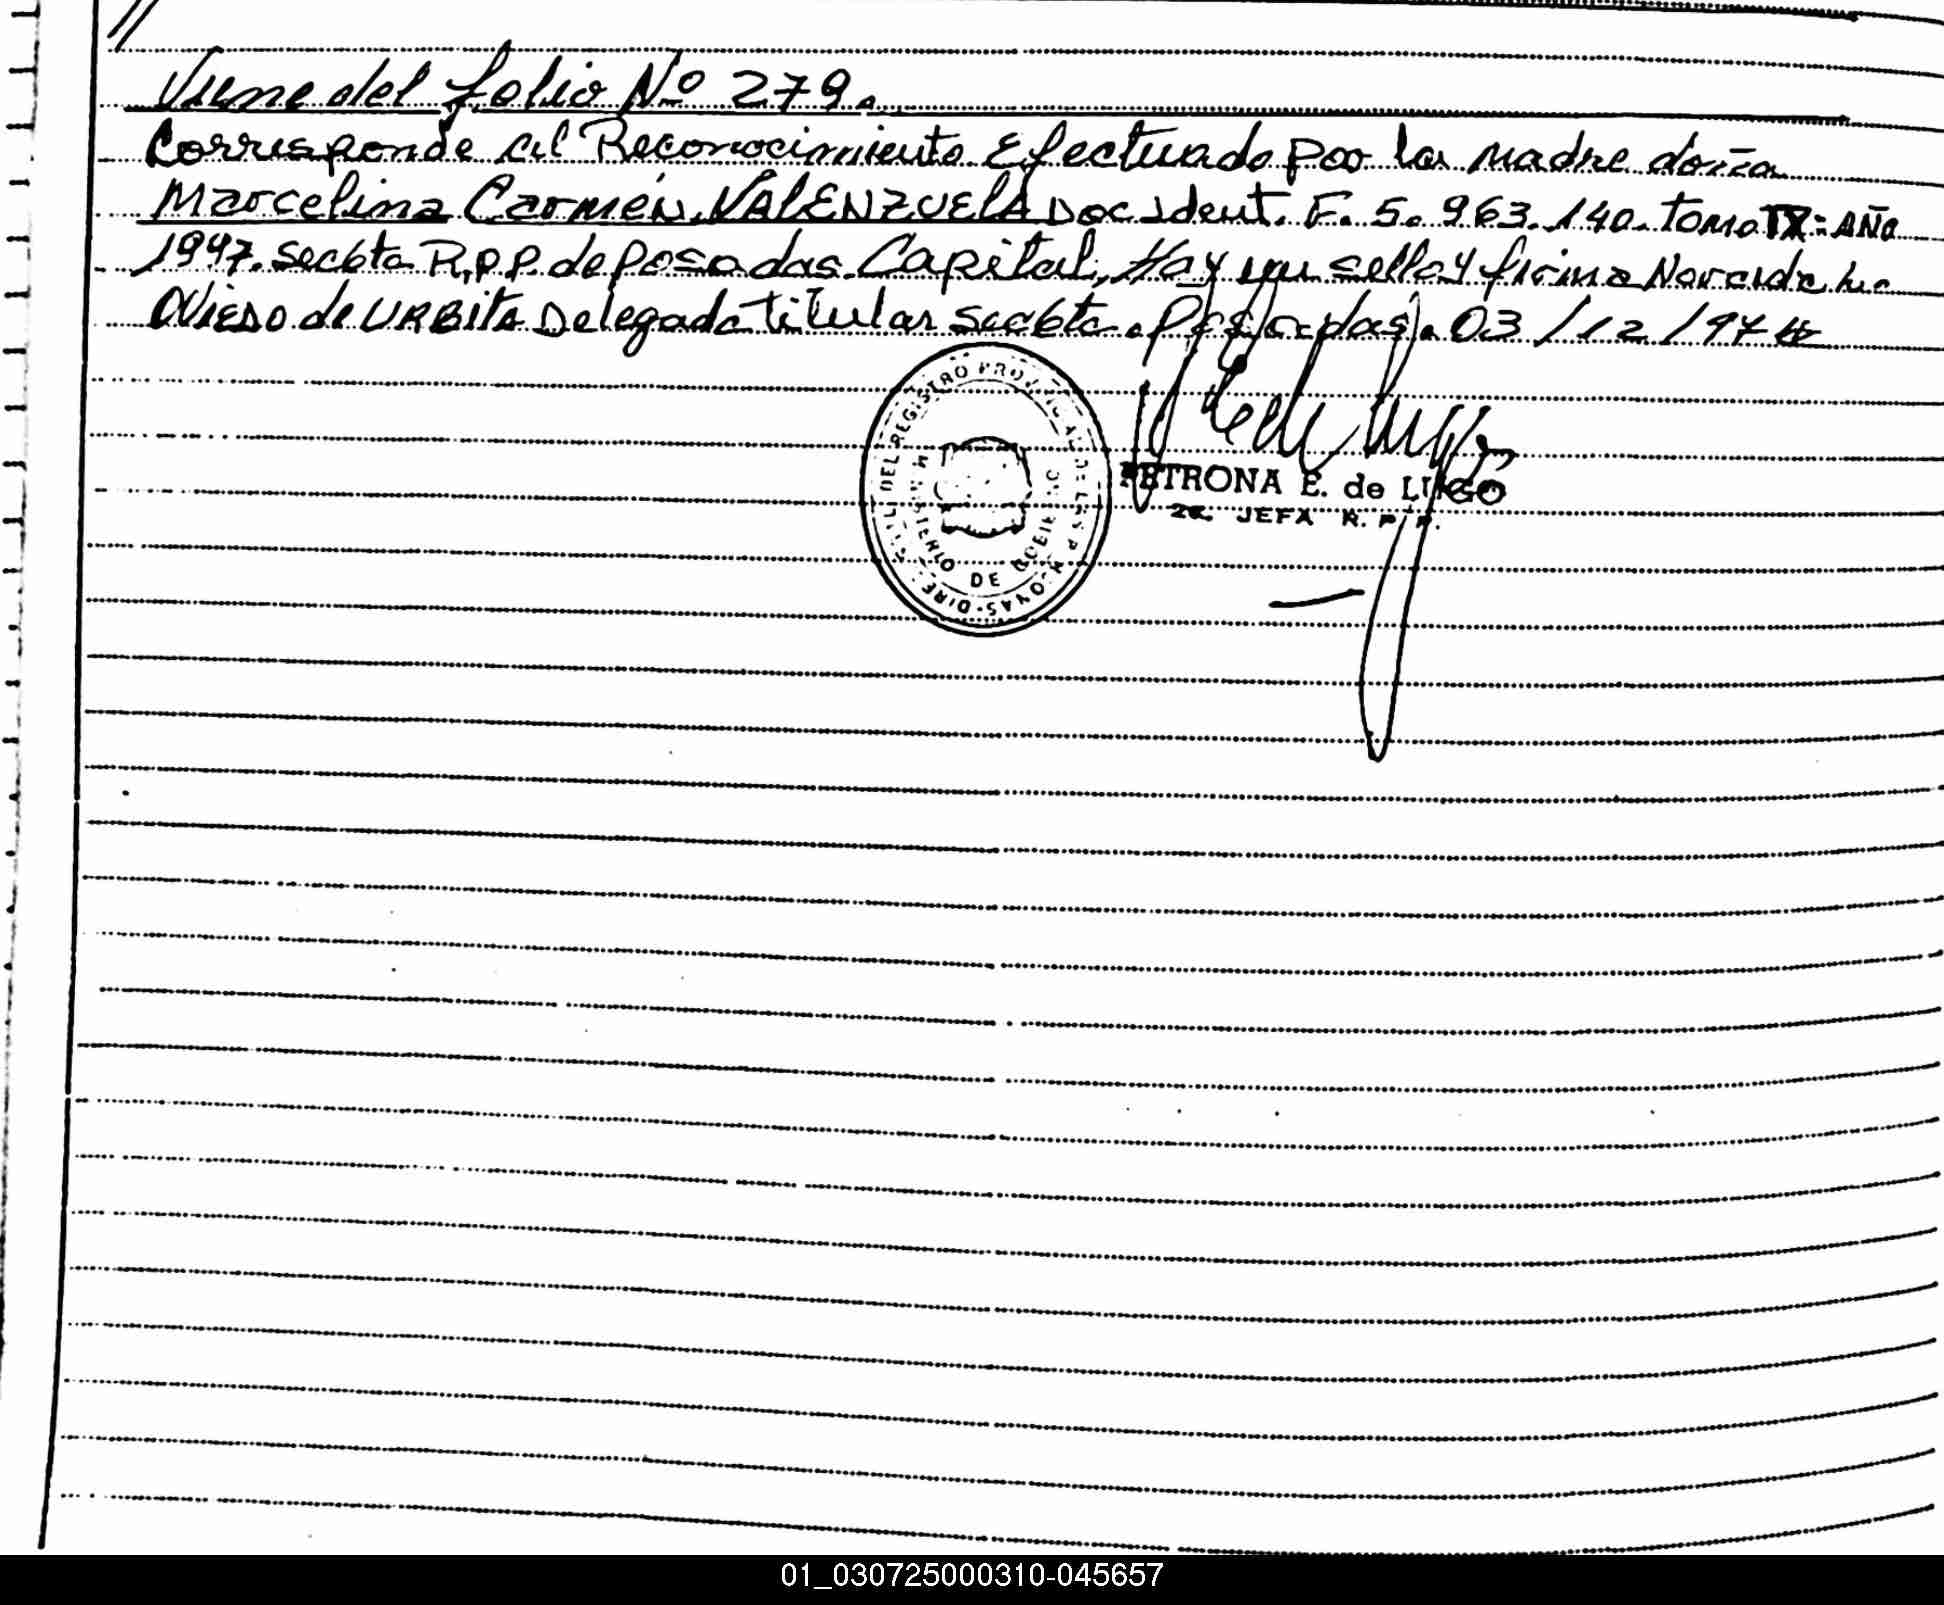 //
Viene del folio Nº 279.
Corresponde al Reconocimiento Efectuado por la madre doña
Marcelina Carmén VALENZUELA Doc Ident. F. 5.963.140. tomo IX= AÑO
1947. secbta R.P.P. de Posadas Capital, Hay un sello y firma
Oviedo de URBITA Delegada titular secbta. Posadas. 03/12/974
DEL REGISTRO PROVINCIAL DE LAS PERSONAS · DIREC
MINISTERIO DE GOBIERNO
PETRONA E. de LUGO
2a. JEFA R. P. P.
01_030725000310-045657